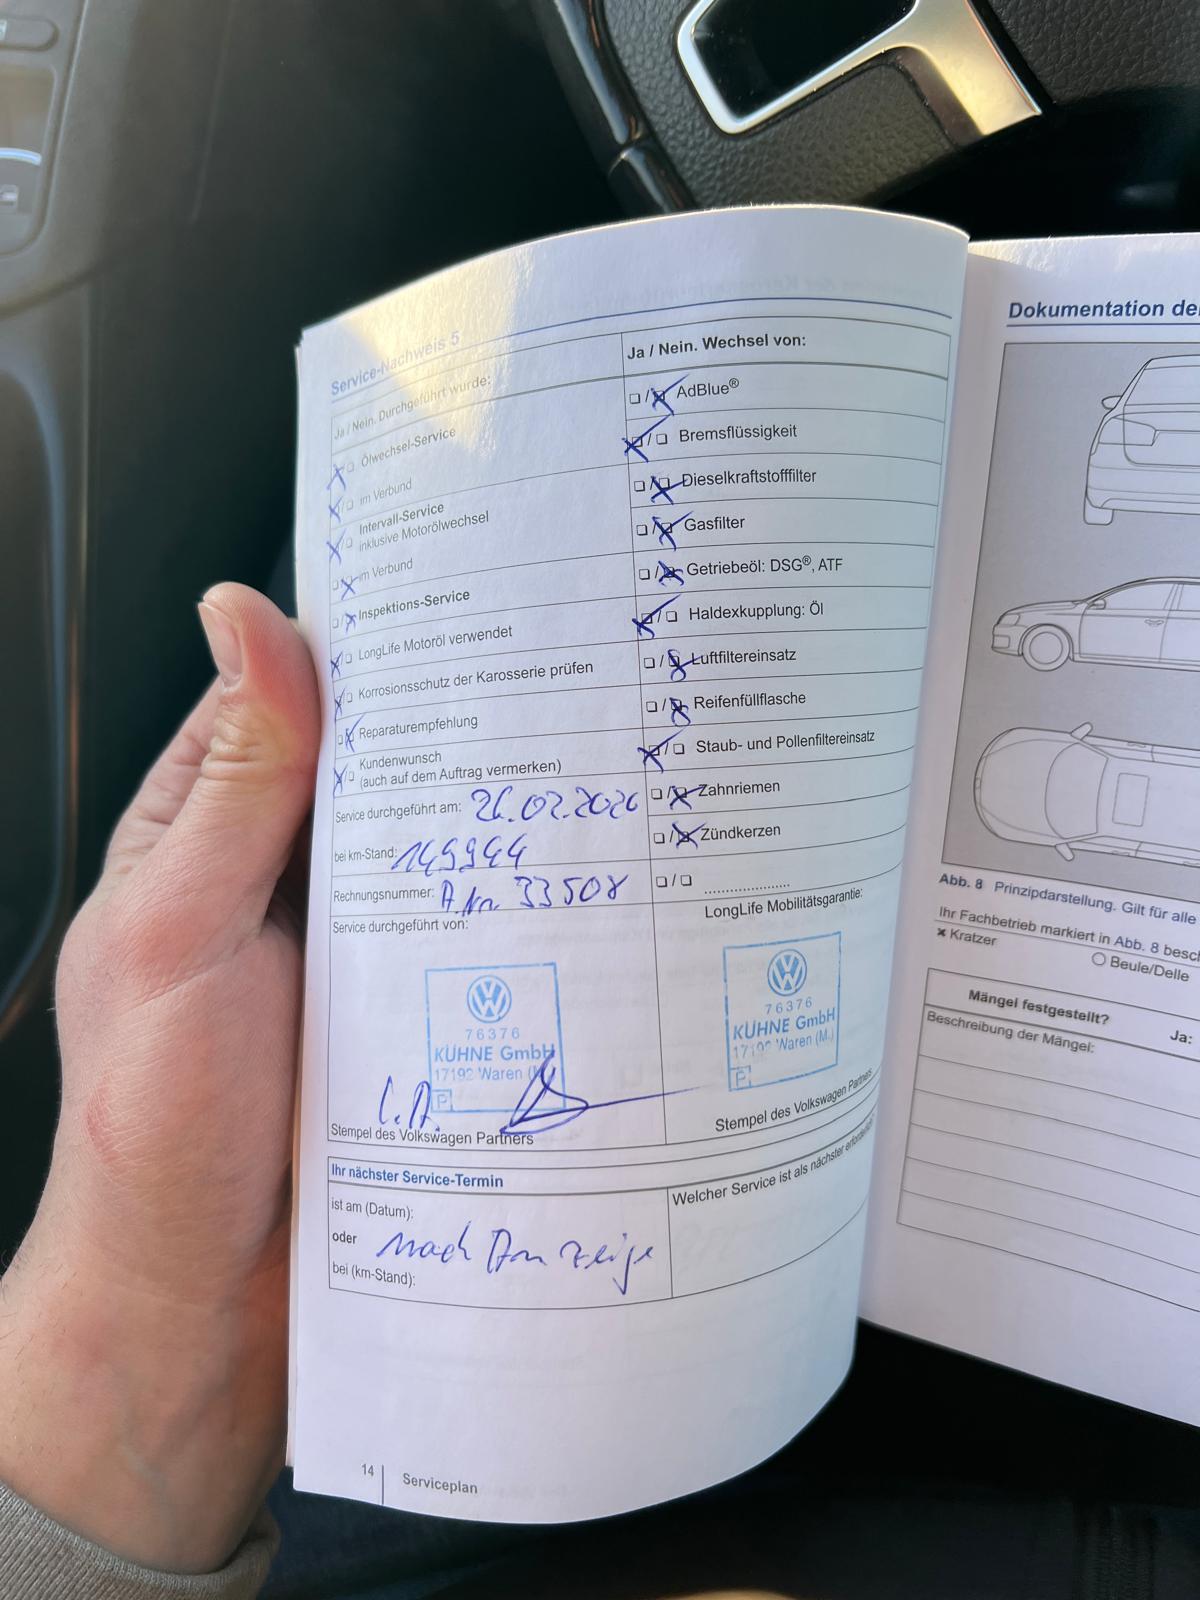 Service-Nachweis 5
Ja / Nein. Durchgeführt wurde:
Ölwechsel-Service
im Verbund
Intervall-Service
inklusive Motorölwechsel
im Verbund
Inspektions-Service
LongLife Motoröl verwendet
Korrosionsschutz der Karosserie prüfen
Reparaturempfehlung
Kundenwunsch
(auch auf dem Auftrag vermerken)
Service durchgeführt am: 26.02.2020
bei km-Stand: 149944
Rechnungsnummer: A.Nr. 33508
Service durchgeführt von:
VW
76376
KÜHNE GmbH
17192 Waren (M.)
P
i.A.
Stempel des Volkswagen Partners
Ja / Nein. Wechsel von:
AdBlue®
Bremsflüssigkeit
Dieselkraftstofffilter
Gasfilter
Getriebeöl: DSG®, ATF
Haldexkupplung: Öl
Luftfiltereinsatz
Reifenfüllflasche
Staub- und Pollenfiltereinsatz
Zahnriemen
Zündkerzen
LongLife Mobilitätsgarantie:
VW
76376
KÜHNE GmbH
17192 Waren (M.)
P
Stempel des Volkswagen Partners
Ihr nächster Service-Termin
ist am (Datum):
oder nach Anzeige
bei (km-Stand):
Welcher Service ist als nächster erforderlich
14 Serviceplan
Dokumentation
Abb. 8 Prinzipdarstellung. Gilt für alle
Ihr Fachbetrieb markiert in Abb. 8
× Kratzer
Beule/Delle
Mängel festgestellt?
Ja:
Beschreibung der Mängel: